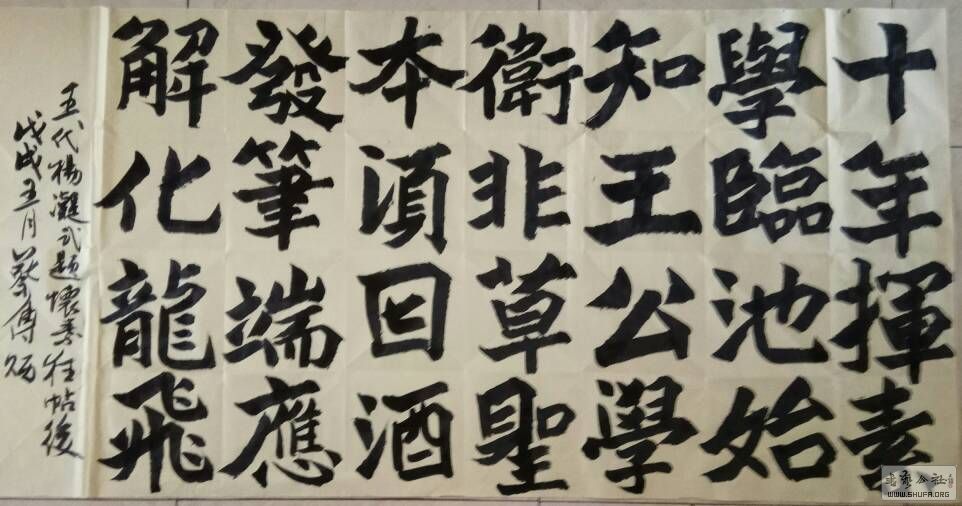 十年揮素
學臨池始
知王公學
衛非草聖
本須因酒
發筆端應
解化龍飛
五代楊凝式題懷素狂帖後
戊戌五月蔡傳
WWW.SHUFA.ORG